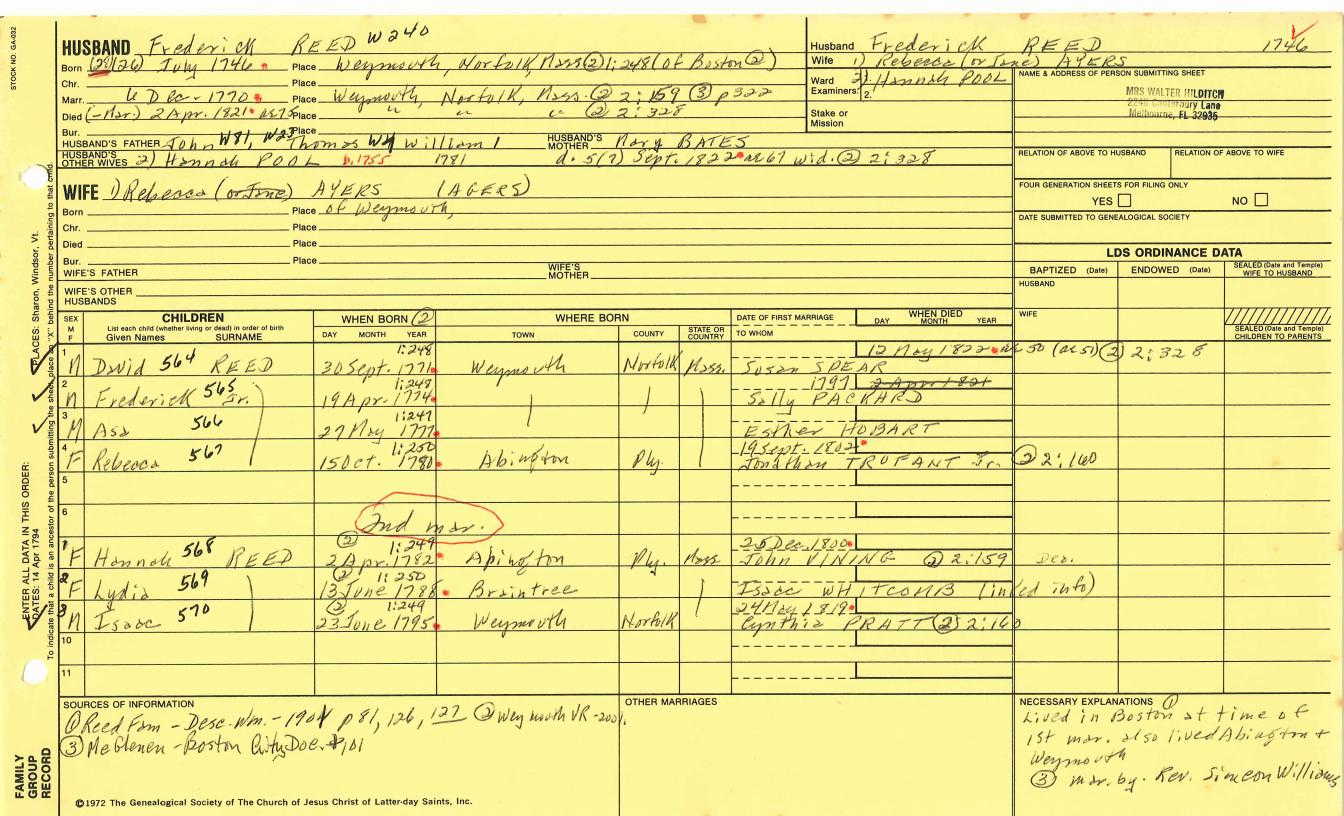 STOCK NO. GA-032
HUSBAND Frederick REED W240
Born (28)(26) July 1746 Place Weymouth, Norfolk, Mass (2) 1:248 (of Boston (2))
Chr. Place
Marr. 6 Dec - 1770 Place Weymouth, Norfolk, Mass. (2) 2:159 (3) p322
Died (-Mar.) 2 Apr. 1821 ae75 Place " " " (2) 2:328
Bur. Place
HUSBAND'S FATHER John W81, W23 Thomas W4 William 1 HUSBAND'S MOTHER Mary BATES
HUSBAND'S OTHER WIVES 2) Hannah POOL b. 1755 1781 d. 5(?) Sept. 1822 ae 67 wid. (2) 2:328
Husband Frederick REED 1746
Wife 1) Rebecca (or Jane) AYERS
2) Hannah POOL
Ward
Examiners: 2.
Stake or
Mission
NAME & ADDRESS OF PERSON SUBMITTING SHEET
MRS WALTER HILDITCH
2248 Canterbury Lane
Melbourne, FL 32935
RELATION OF ABOVE TO HUSBAND RELATION OF ABOVE TO WIFE
FOUR GENERATION SHEETS FOR FILING ONLY
YES NO
DATE SUBMITTED TO GENEALOGICAL SOCIETY
WIFE 1) Rebecca (or Jane) AYERS (AGERS)
Born Place of Weymouth,
Chr. Place
Died Place
Bur. Place
WIFE'S FATHER WIFE'S MOTHER
WIFE'S OTHER HUSBANDS
LDS ORDINANCE DATA
BAPTIZED (Date) ENDOWED (Date) SEALED (Date and Temple) WIFE TO HUSBAND
HUSBAND
WIFE
SEALED (Date and Temple) CHILDREN TO PARENTS
SEX M F
CHILDREN
List each child (whether living or dead) in order of birth
Given Names SURNAME
WHEN BORN (2)
DAY MONTH YEAR
WHERE BORN
TOWN COUNTY STATE OR COUNTRY
DATE OF FIRST MARRIAGE
TO WHOM
WHEN DIED
DAY MONTH YEAR
1 1:248 12 May 1822 ae 50 (ae 51) (2) 2:328
M David 564 REED 30 Sept. 1771 Weymouth Norfolk Mass. Susan SPEAR
2 1:248 1797 2 Apr 1821
M Frederick 565 Jr. 19 Apr. 1774 Sally PACKARD
3 1:247
M Asa 566 27 May 1777 Esther HOBART
4 1:250 19 Sept. 1802
F Rebecca 567 15 Oct. 1780 Abington Ply. Jonathan TRUFANT Jr. (2) 2:160
5
6 2nd mar.
1 (2) 1:249 25 Dec. 1800
F Hannah 568 REED 2 Apr. 1782 Abington Ply. Mass John VINING (2) 2:159 Dea.
2 (2) 1:250
F Lydia 569 13 June 1788 Braintree Isaac WHITCOMB (inked info)
3 (2) 1:249 24 May 1819
M Isaac 570 23 June 1795 Weymouth Norfolk Cynthia PRATT (2) 2:160
10
11
SOURCES OF INFORMATION
(1) Reed Fam - Desc. Wm. - 1901 p 81, 126, 127 (2) Weymouth VR - 2001.
(3) McGlenen - Boston City Doc. #101
OTHER MARRIAGES
NECESSARY EXPLANATIONS (1)
Lived in Boston at time of
1st mar. also lived Abington +
Weymouth
(3) mar. by. Rev. Simeon Williams
©1972 The Genealogical Society of The Church of Jesus Christ of Latter-day Saints, Inc.
FAMILY
GROUP
RECORD
ENTER ALL DATA IN THIS ORDER:
DATES: 14 Apr 1794
PLACES: Sharon, Windsor, Vt.
To indicate that a child is an ancestor of the person submitting the sheet, place an "X" behind the number pertaining to that child.